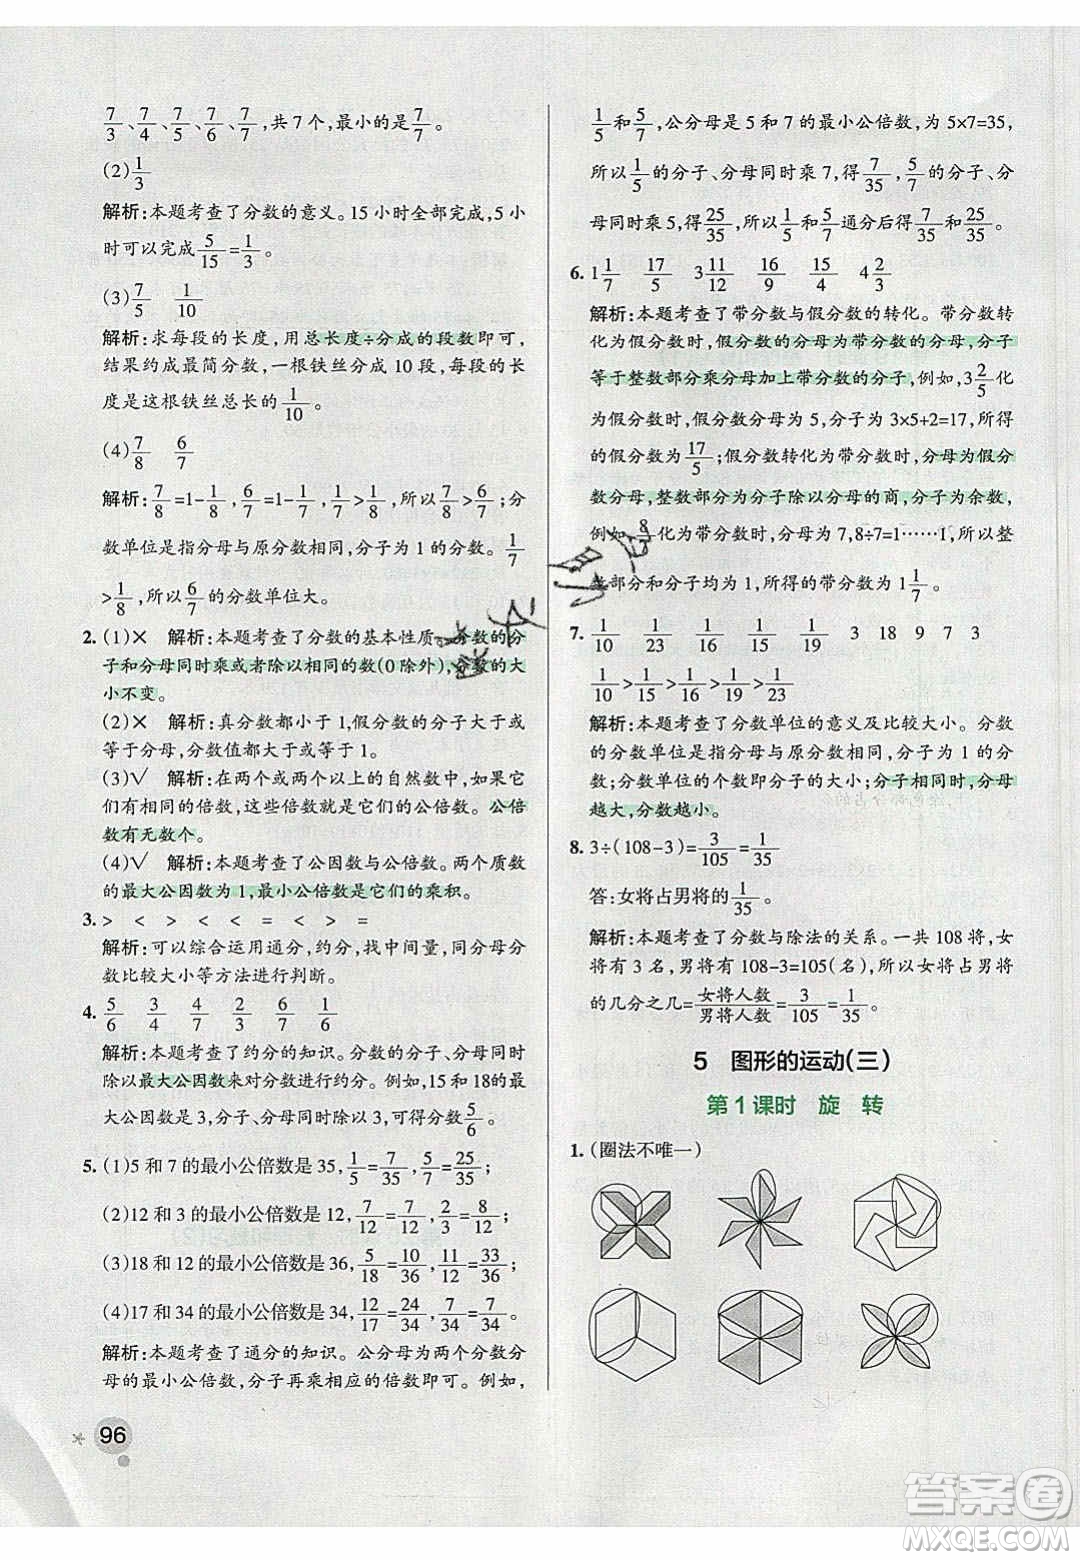 7/3、7/4、7/5、7/6、7/7,共7个,最小的是7/7。
(2)1/3
解析:本题考查了分数的意义。15小时全部完成,5小
时可以完成5/15=1/3。
(3)7/5 1/10
解析:求每段的长度,用总长度÷分成的段数即可,
结果约成最简分数,一根铁丝分成10段,每段的长
度是这根铁丝总长的1/10。
(4)7/8 6/7
解析:7/8=1-1/8,6/7=1-1/7,1/7>1/8,所以7/8>6/7;分
数单位是指分母与原分数相同、分子为1的分数。1/7
>1/8,所以6/7的分数单位大。
2. (1)× 解析:本题考查了分数的基本性质。分数的分
子和分母同时乘或者除以相同的数(0除外),分数的大
小不变。
(2)× 解析:真分数都小于1,假分数的分子大于或
等于分母,分数值都大于或等于1。
(3)√ 解析:在两个或两个以上的自然数中,如果它
们有相同的倍数,这些倍数就是它们的公倍数。公倍
数有无数个。
(4)√ 解析:本题考查了公因数与公倍数。两个质数
的最大公因数为1,最小公倍数是它们的乘积。
3. > < > < < = < > =
解析:可以综合运用通分,约分,找中间量,同分母分
数比较大小等方法进行判断。
4. 5/6 3/4 4/7 2/7 6/7 1/6
解析:本题考查了约分的知识。分数的分子、分母同时
除以最大公因数来对分数进行约分。例如,15和18的最
大公因数是3,分子、分母同时除以3,可得分数5/6。
5. (1)5和7的最小公倍数是35,1/5=7/35,5/7=25/35;
(2)12和3的最小公倍数是12,7/12=7/12,2/3=8/12;
(3)18和12的最小公倍数是36,5/18=10/36,11/12=33/36;
(4)17和34的最小公倍数是34,12/17=24/34,7/34=7/34。
解析:本题考查了通分的知识。公分母为两个分数分
母的最小公倍数,分子再乘相应的倍数即可。例如,
1/5和5/7,公分母是5和7的最小公倍数,为5×7=35,
所以1/5的分子、分母同时乘7,得7/35,5/7的分子、分
母同时乘5,得25/35,所以1/5和5/7通分后得7/35和25/35。
6. 1 1/7 17/5 3 11/12 16/9 15/14 4 2/3
解析:本题考查了带分数与假分数的转化。带分数转
化为假分数时,假分数的分母为带分数的分母,分子
等于整数部分乘分母加上带分数的分子,例如,3 2/5化
为假分数时,假分数分母为5,分子为3×5+2=17,所得
的假分数为17/5;假分数转化为带分数时,分母为假分
数分母,整数部分为分子除以分母的商,分子为余数,
例如8/7化为带分数时,分母为7,8÷7=1……1,所以整
数部分和分子均为1,所得的带分数为1 1/7。
7. 1/10 1/23 1/15 1/16 1/19 3 18 9 7 3
1/10>1/15>1/16>1/19>1/23
解析:本题考查了分数单位的意义及比较大小。分数
的分数单位是指分母与原分数相同,分子为1的分
数;分数单位的个数即分子的大小;分子相同时,分母
越大,分数越小。
8. 3÷(108-3)=3/105=1/35
答:女将占男将的1/35。
解析:本题考查了分数与除法的关系。一共108将,女
将有3名,男将有108-3=105(名),所以女将占男将
的几分之几=女将人数/男将人数=3/105=1/35。
5 图形的运动(三)
第1课时 旋 转
1. (圈法不唯一)
96
答案圈
MXQE.COM